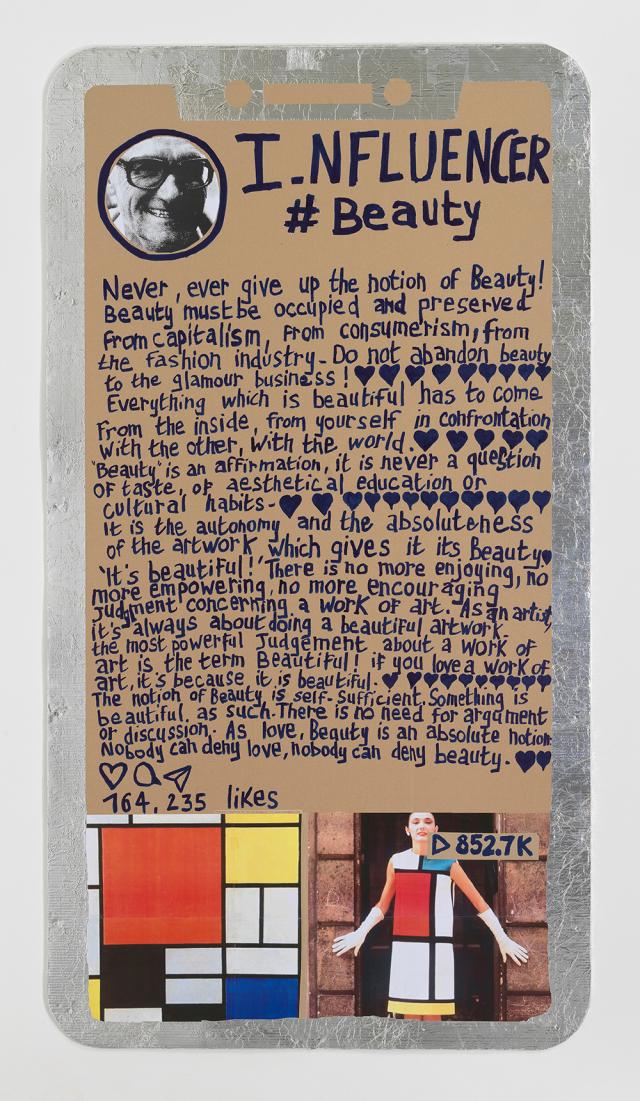 I.NFLUENCER
# Beauty
Never, ever give up the notion of Beauty!
Beauty must be occupied and preserved
from capitalism, from consumerism, from
the fashion industry. Do not abandon beauty
to the glamour business! ♥♥♥♥♥♥♥♥♥
Everything which is beautiful has to come
from the inside, from yourself in confrontation
with the other, with the world. ♥♥♥♥♥
"Beauty" is an affirmation, it is never a question
of taste, of aesthetical education or
cultural habits. ♥♥♥♥♥♥♥♥♥♥♥♥
It is the autonomy and the absoluteness
of the artwork which gives it its Beauty♥
'It's beautiful!' There is no more enjoying, no
more empowering, no more encouraging
judgment concerning a work of art. As an artist,
it's always about doing a beautiful artwork.
the most powerful Judgement about a work of
art is the term Beautiful! if you love a work of
art, it's because it is beautiful. ♥♥♥♥♥♥♥♥♥♥
The notion of Beauty is self-sufficient. Something is
beautiful, as such. There is no need for argument
or discussion. As love, Beauty is an absolute notion.
Nobody can deny love, nobody can deny beauty. ♥♥
164,235 likes
852.7K